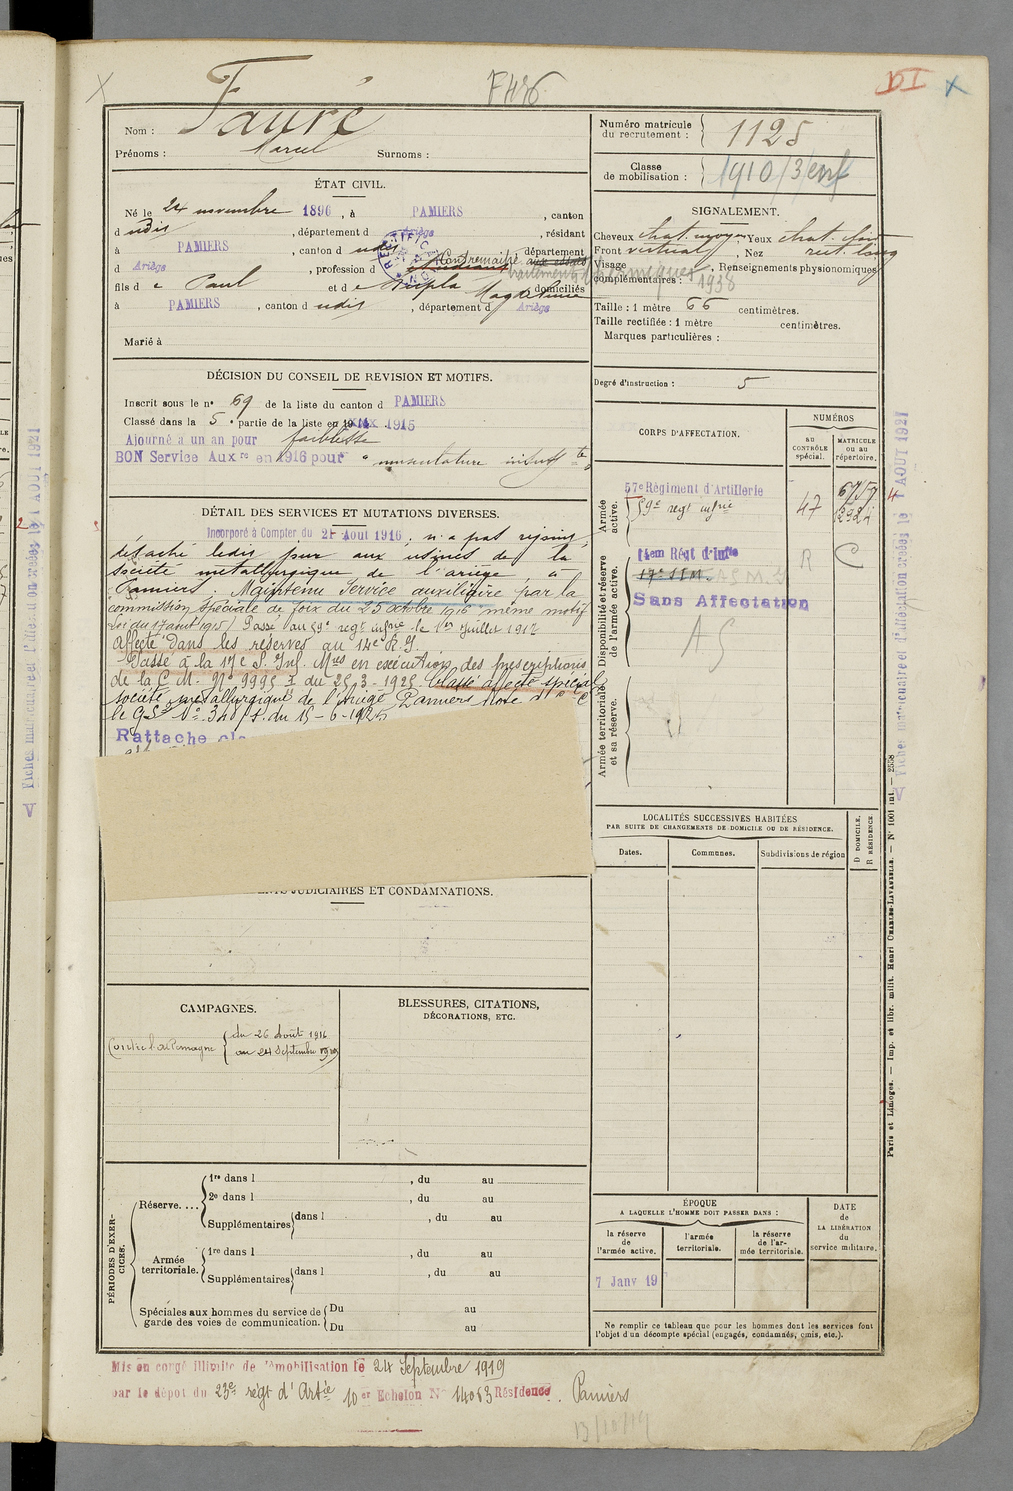 F436
DI
Nom : Fauré
Prénoms : Marcel Surnoms :
Numéro matricule du recrutement : 1125
Classe de mobilisation : 1910/3/enf
ÉTAT CIVIL.
Né le 24 novembre 1896, à PAMIERS, canton
dudis, département d Ariège, résidant
à PAMIERS, canton d udis, département
d Ariège, profession d Contremaitre aux essais
traitements thermiques 1938
fils d e Paul et d e Magdeleine domiciliés
à PAMIERS, canton d udis, département d Ariège
Marié à
SIGNALEMENT.
Cheveux chat. moyen, Yeux chat. foncé
Front vertical, Nez rect. long
Visage, Renseignements physionomiques
complémentaires :
Taille : 1 mètre 66 centimètres.
Taille rectifiée : 1 mètre centimètres.
Marques particulières :
Degré d'instruction : 5
DÉCISION DU CONSEIL DE REVISION ET MOTIFS.
Inscrit sous le n° 69 de la liste du canton d PAMIERS
Classé dans la 5e partie de la liste en 1915
Ajourné à un an pour faiblesse
BON Service Auxre en 1916 pour "musculature insuffte"
DÉTAIL DES SERVICES ET MUTATIONS DIVERSES.
Incorporé à Compter du 26 Aout 1916, n'a pas rejoint,
détaché ledis jour aux usines de la
Société métallurgique de l'ariège, à
Pamiers. Maintenu Service auxiliaire par la
commission spéciale de foix du 25 octobre 1916 même motif
Loi du 17 aout 1915/ Passé au 59e regt infrie le 1er Juillet 1917
Affecté dans les réserves au 14e R.I.
Passé à la 17e S. Inf. Mres en exécution des prescriptions
de la C. M. N° 9995 du 25-3-1928 Classé affecté spécial
Société métallurgique de l'Ariège Pamiers Note
le G N° 348 du 15-6-1925
Rattaché
CORPS D'AFFECTATION.
NUMÉROS
AU CONTRÔLE spécial.
MATRICULE OU AU répertoire.
Armée active.
57e Régiment d'Artillerie
59e regt infrie
47
6757
Disponibilité et réserve de l'armée active.
14em Régt d'Infie
R
C
17e SIM. ASM.
Sans Affectation
AS
Armée territoriale et sa réserve.
LOCALITÉS SUCCESSIVES HABITÉES
PAR SUITE DE CHANGEMENTS DE DOMICILE OU DE RÉSIDENCE.
Dates.
Communes.
Subdivisions de région
D DOMICILE.
R RÉSIDENCE
JUDICIAIRES ET CONDAMNATIONS.
CAMPAGNES.
Contre l'allemagne du 26 Août 1916
au 24 Septembre 1919
BLESSURES, CITATIONS,
DÉCORATIONS, ETC.
PÉRIODES D'EXERCICES.
Réserve....
1re dans l , du au
2e dans l , du au
Supplémentaires dans l , du au
Armée territoriale.
1re dans l , du au
Supplémentaires dans l , du au
Spéciales aux hommes du service de garde des voies de communication.
Du au
Du au
ÉPOQUE
A LAQUELLE L'HOMME DOIT PASSER DANS :
la réserve de l'armée active.
l'armée territoriale.
la réserve de l'armée territoriale.
DATE de LA LIBÉRATION du service militaire.
7 Janv 19
Ne remplir ce tableau que pour les hommes dont les services font
l'objet d'un décompte spécial (engagés, condamnés, omis, etc.).
Mis en congé illimité de démobilisation le 24 Septembre 1919
par le dépôt du 23e régt d'Artie 10er Echelon N° 14063 Résidence Pamiers
13/10/19
Fiches matriculaire et d'affectation créées le 1 AOUT 1921
Paris et Limoges. — Imp. et libr. milit. Henri CHARLES-LAVAUZELLE. — N° 1001 int. — 2558